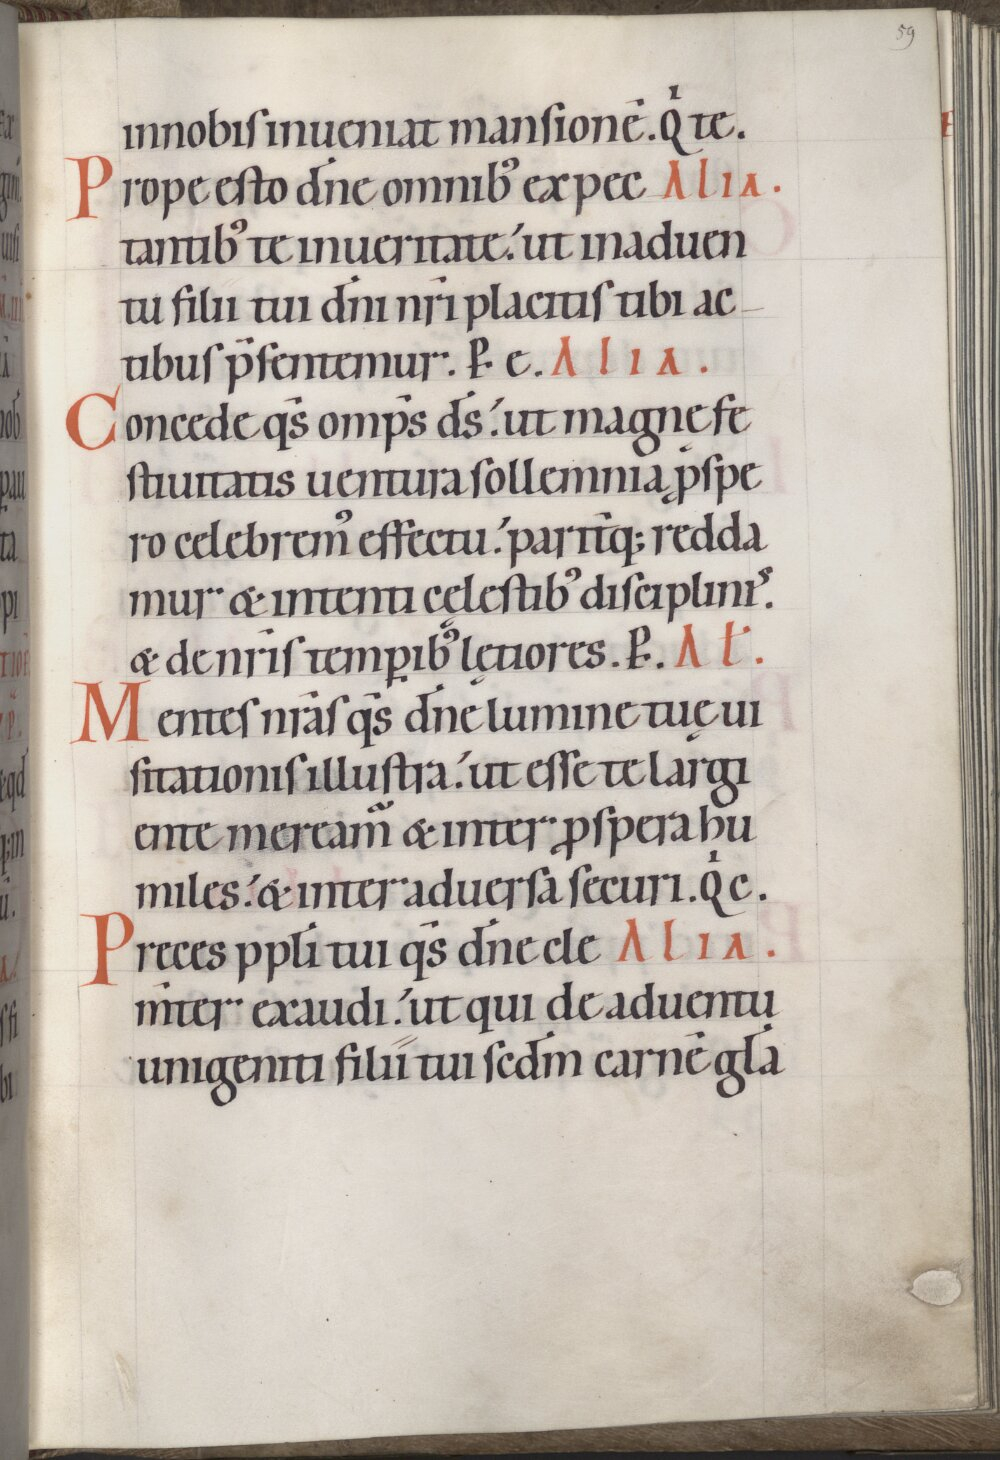 59
innobis inueniat mansionē. Q̇ te.
Prope esto dn̄e omnibꝰ expec Alia.
tantibꝰ te inueritate. ut inaduen
tu filii tui dn̄i nr̄i placitis tibi ac-
tibus p̄sentemur. P. e. Alia.
Concede qs̄ omp̄s ds̄. ut magnę fe
stiuitatis uentura sollemnia ꝓspe
ro celebrem᷒ effectu. paritq̄; redda
mur & intenti cęlestibꝰ disciplinis.
& de nr̄is tempibꝰ lętiores. P. Al.
Mentes nr̄as qs̄ dn̄e lumine tuę ui
sitationis illustra. ut esse te largi
ente mereamur & inter ꝓspera hu
miles. & inter aduersa securi. Q̇ e.
Preces ppl̄i tui qs̄ dn̄e cle Alia.
m̄ter exaudi. ut qui de aduentu
unigeniti filii tui scdm̄ carnē gl̄a